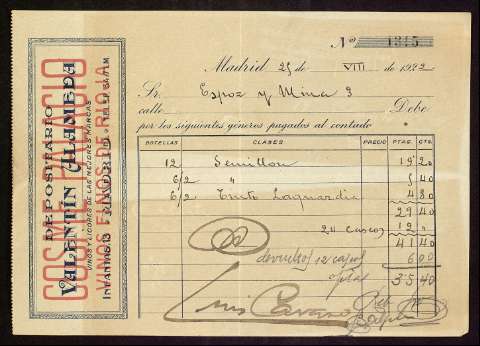 DEPOSITARIO
VALENTÍN ALAMEDA
VINOS Y LICORES DE LAS MEJORES MARCAS
COSME PALACIO
VINOS FINOS DE RIOJA
MADRID
Nº 1315
Madrid 25 de VIII de 1922
Sr. Espoz y Mina 3
calle Debe
por los siguientes géneros pagados al contado
BOTELLAS CLASES PRECIO PTAS. CTS.
12 Semillon 19 20
6/2 " 5 40
6/2 Tinto Laguardia 4 80
29 40
24 cascos 12 "
41 40
devueltos 12 cascos 6 00
ptas 35 40
Luis